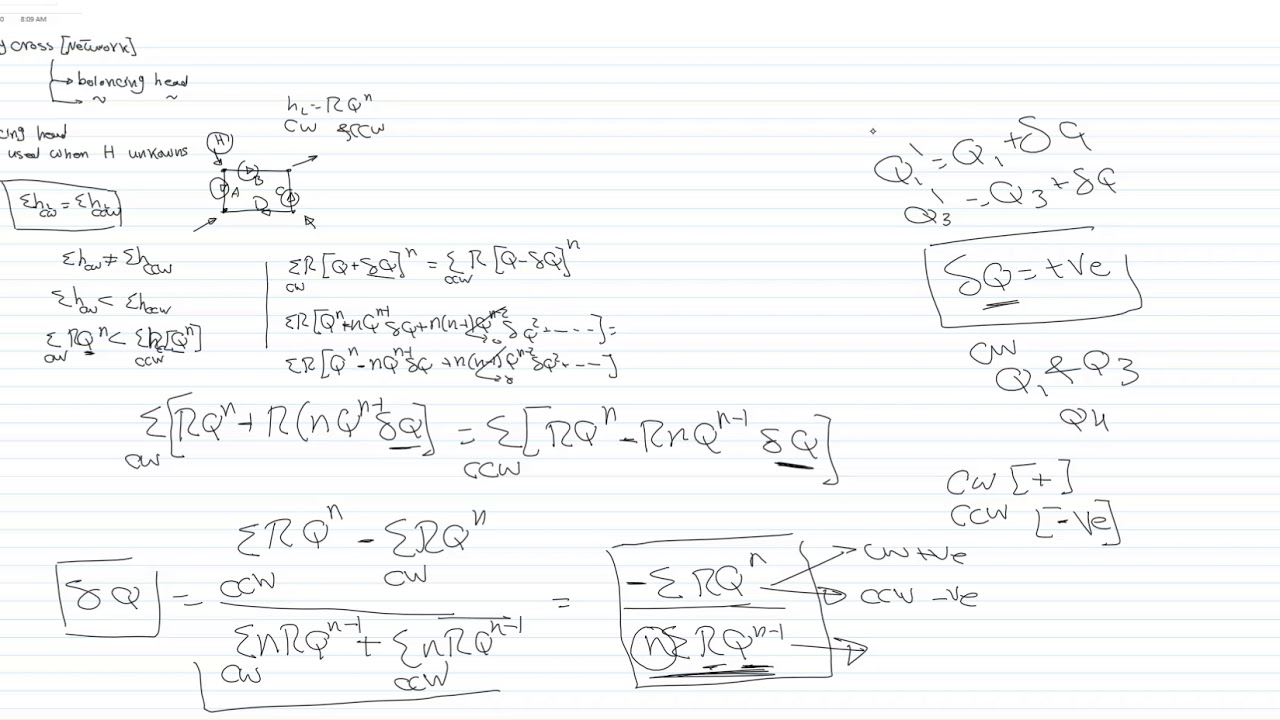 8:09 AM
y cross [Network]
balancing head
~ ~
h_L = RQ^n
CW & CCW
cing head
used when H unkowns
H
A
B
C
D
Σh_L CW = Σh_L CCW
Σh_CW ≠ Σh_CCW
Σh_CW < Σh_CCW
Σ_CW RQ^n < Σ_CCW [Q^n]
Σ_CW R[Q+δQ]^n = Σ_CCW R[Q-δQ]^n
ΣR[Q^n+nQ^n-1 δQ+n(n-1)Q^n-2 δQ^2+-----]=
ΣR[Q^n-nQ^n-1 δQ+n(n-1)Q^n-2 δQ^2+---]
Σ_CW [RQ^n+R(nQ^n-1 δQ] = Σ_CCW [RQ^n-RnQ^n-1 δQ]
δQ = (Σ_CCW RQ^n - Σ_CW RQ^n) / (Σ_CW nRQ^n-1 + Σ_CCW nRQ^n-1) = -ΣRQ^n / nΣRQ^n-1
CW +ve
CCW -ve
Q_1' = Q_1+δQ
Q_3' = Q_3+δQ
δQ = +ve
CW
Q_1 & Q_3
Q4
CW [+]
CCW [-Ve]